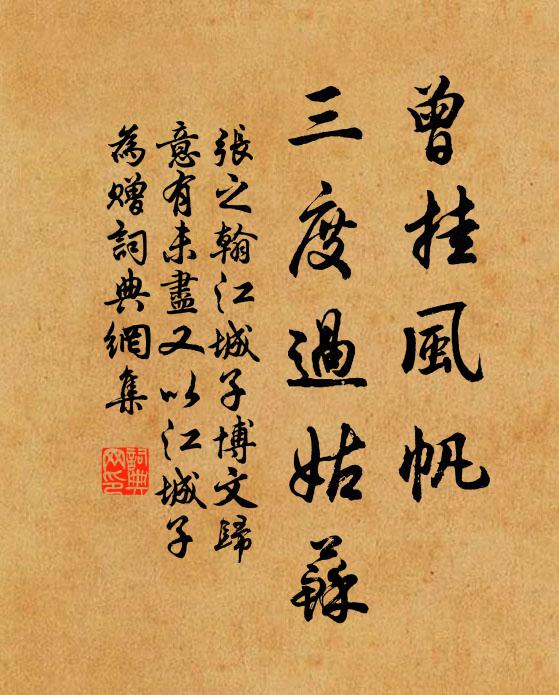 曾挂風帆
三度過姑蘇
張之翰江城子博文歸
意有未盡又以江城子
為赠詞典網集
詞典網印